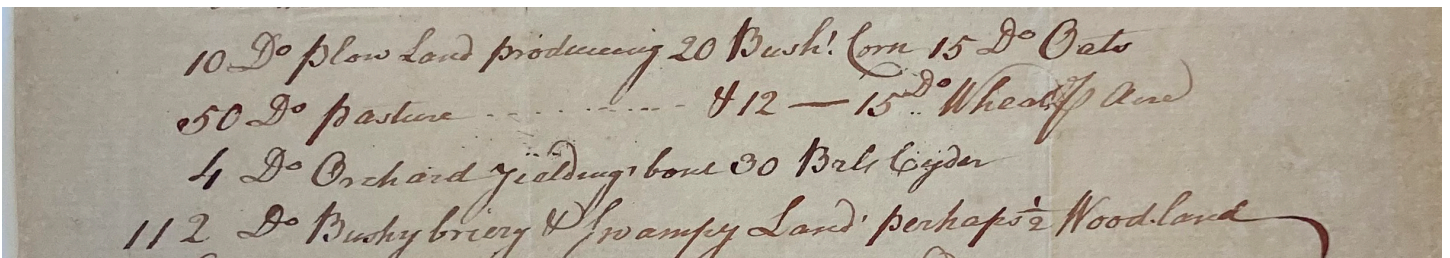 10 Do plow Land producing 20 Bushl. Corn 15 Do Oats
50 Do pasture - - - - - - - - - - & 12 — 15 Do. Wheat ⅌ Acre
4 Do Orchard yielding 'bout 30 Brls Cyder
112 Do Bushy briery & Swampy Land perhaps ½ Woodland